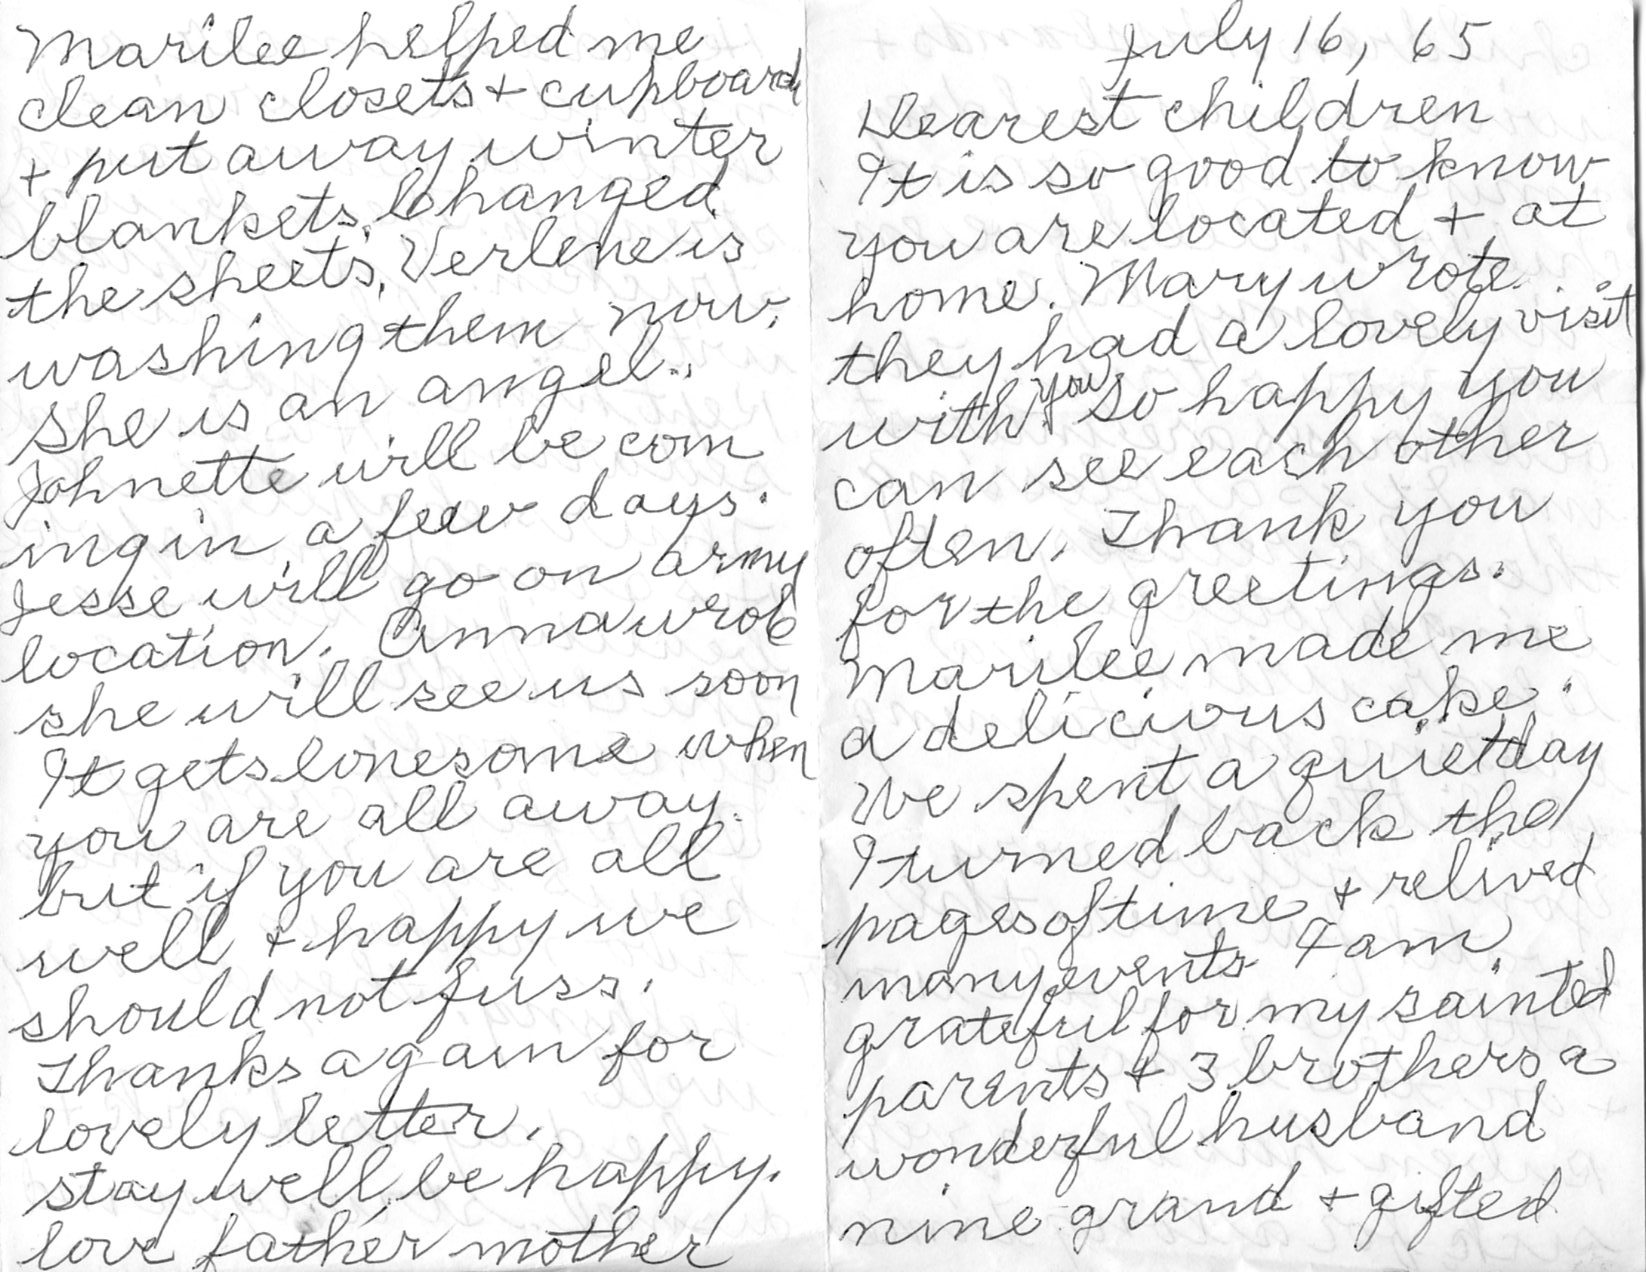 July 16, 65
Dearest children
It is so good to know
you are located + at
home. Mary wrote
they had a lovely visit
with you so happy you
can see each other
often. Thank you
for the greetings.
Marilee made me
a delicious cake.
We spent a quiet day
I turned back the
pages of time + relived
many events I am
grateful for my sainted
parents + 3 brothers a
wonderful husband
nine grand + gifted
Marilee helped me
clean closets + cupboards
+ put away winter
blankets. Changed
the sheets. Verlene is
washing them now.
She is an angel.
Johnette will be com
ing in a few days.
Jesse will go on army
location. Anna wrote
she will see us soon
It gets lonesome when
you are all away.
but if you are all
well + happy we
should not fuss.
Thanks again for
lovely letter.
stay well, be happy.
love father mother